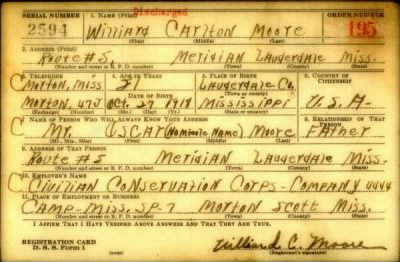 Discharged
SERIAL NUMBER 1. NAME (Print) ORDER NUMBER
2594 Williard Carlton Moore 195
(First) (Middle) (Last)
2. ADDRESS (Print)
Route #5 Meridian Lauderdale Miss.
(Number and street or R. F. D. number) (Town) (County) (State)
3. TELEPHONE 4. AGE IN YEARS 5. PLACE OF BIRTH 6. COUNTRY OF CITIZENSHIP
Morton, Miss 21 Lauderdale Co.
DATE OF BIRTH
Morton, Oct. 27 1919 Mississippi U.S.A.
(Exchange) (Number) (Mo.) (Day) (Yr.) (State or country)
7. NAME OF PERSON WHO WILL ALWAYS KNOW YOUR ADDRESS 8. RELATIONSHIP OF THAT PERSON
Mr. Oscar (No Middle Name) Moore Father
(Mr., Mrs., Miss) (First) (Middle) (Last)
9. ADDRESS OF THAT PERSON
Route #5 Meridian Lauderdale Miss.
(Number and street or R. F. D. number) (Town) (County) (State)
10. EMPLOYER'S NAME
Civilian Conservation Corps - Company 4444
11. PLACE OF EMPLOYMENT OR BUSINESS
Camp-Miss. SP-7 Morton Scott Miss.
(Number and street or R. F. D. number) (Town) (County) (State)
I AFFIRM THAT I HAVE VERIFIED ABOVE ANSWERS AND THAT THEY ARE TRUE.
REGISTRATION CARD
D. S. S. Form 1 Williard C. Moore
(Registrant's signature)